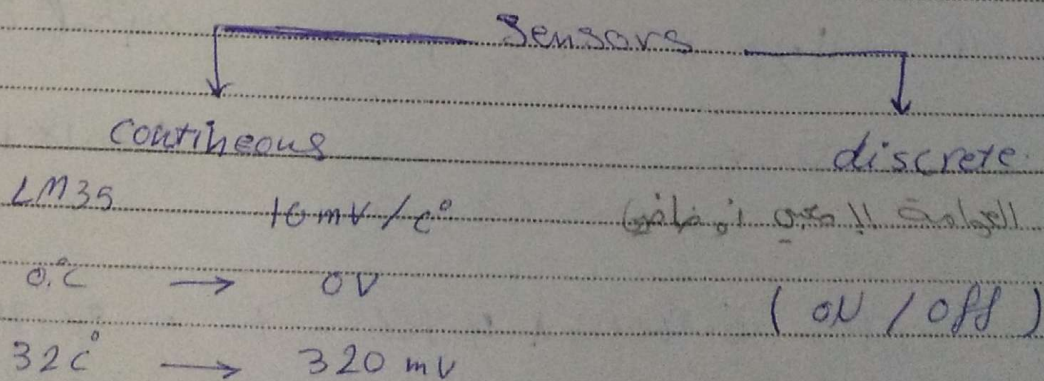 Sensors
contineous discrete
LM35 10mV/c° العوامة إما
0.°c → 0V (ON / Off)
32c° → 320 mV